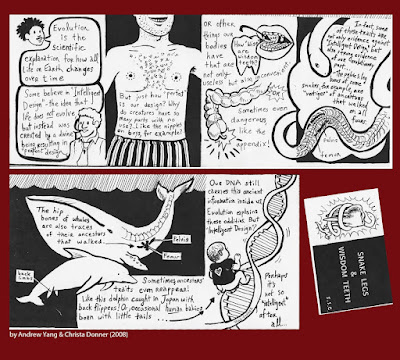 Evolution
is the
scientific
explanation for how all
life on Earth changes
over time
Some believe in "Intelligent
Design" - the idea that
life does not evolve
but instead was
created by a divine
being resulting in
perfect design.
But just how "perfect"
is our design? Why
do creatures have so
many parts with no
use? Like the nipples
on boys for example!
Or other
things our
bodies
have that
are not
only useless
but also
inconvenient...
How 'bout
wisdom
teeth?
sometimes even
dangerous
like the
appendix!
In fact, some
of these traits are
not only evidence against
"Intelligent Design", but
also
evidence
of our
evolutionary
past.
snakes, for example, are
"vestiges" of ancestors
that walked
on all
fours.
Pelvis
Femur
The hip
bones of whales
are also traces
of their ancestors
that walked.
Pelvis
Femur
back limbs
Sometimes ancestors'
traits even reappear!
Like this dolphin caught in Japan with
back flippers! Or, occasional human babies
born with little tails . . .
Our DNA still
carries this ancient
information inside us.
Evolution explains
these oddities. But
"Intelligent Design"?
Perhaps
it's
not so
"intelligent"
after
all...
SNAKE LEGS
&
WISDOM TEETH
by Andrew Yang & Christa Donner (2008)